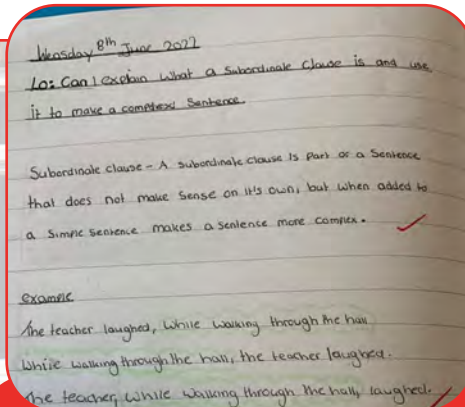 Wensday 8th June 2022
Lo: Can I explain what a Subordinate Clause is and use
it to make a complexd Sentence.
Subordinate clause - A subordinate clause is part of a Sentence
that does not make sense on it's own, but when added to
a simple sentence makes a sentence more complex.
example
The teacher laughed, while walking through the hall
While walking through the hall, the teacher laughed.
The teacher, while walking through the hall, laughed.